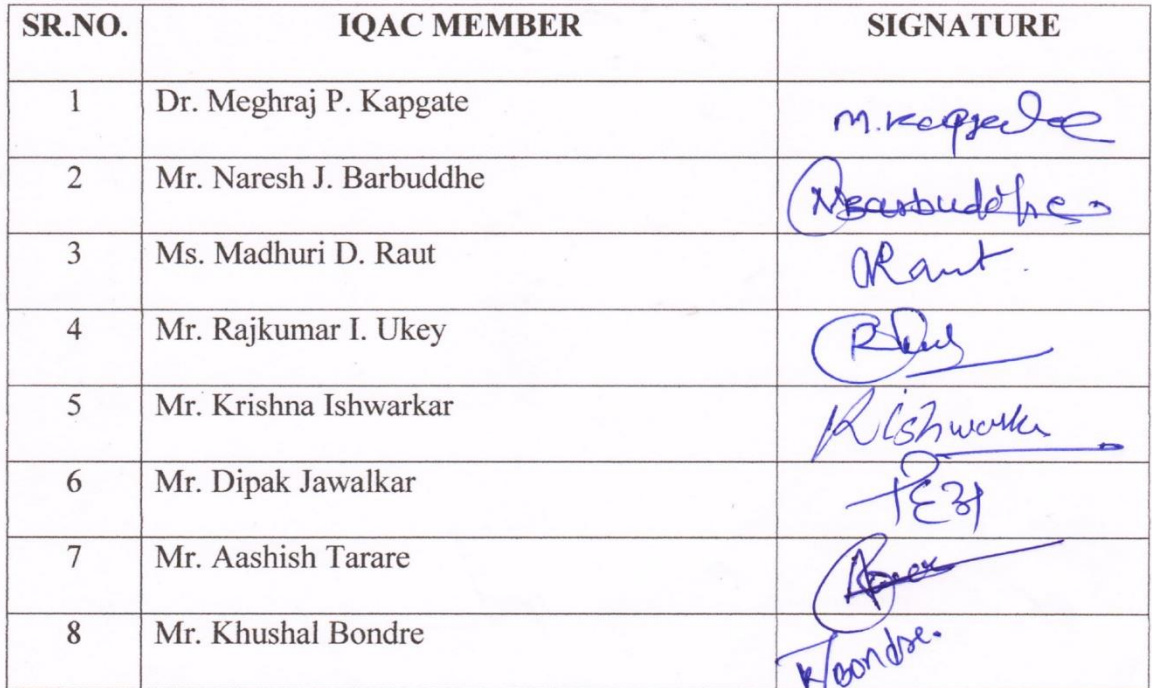 SR.NO. IQAC MEMBER SIGNATURE
1 Dr. Meghraj P. Kapgate M.Kapgate
2 Mr. Naresh J. Barbuddhe NBarbuddhe
3 Ms. Madhuri D. Raut Raut.
4 Mr. Rajkumar I. Ukey
5 Mr. Krishna Ishwarkar KIshwarkar
6 Mr. Dipak Jawalkar
7 Mr. Aashish Tarare
8 Mr. Khushal Bondre KBondre.